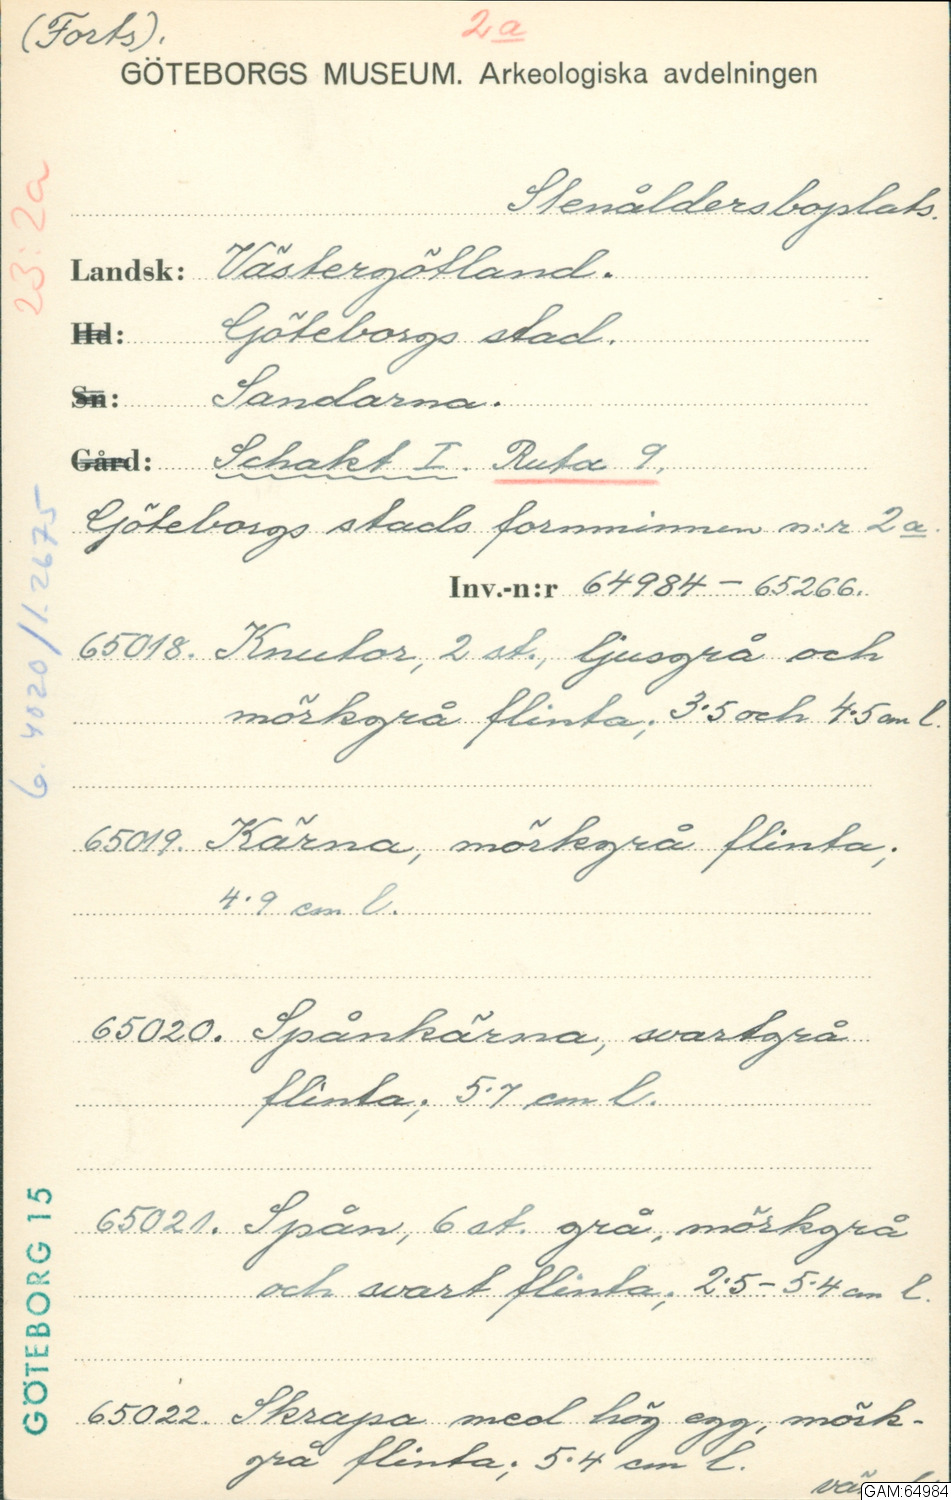 (Forts).
2a
GÖTEBORGS MUSEUM. Arkeologiska avdelningen
23:2a
Stenåldersboplats.
Landsk: Västergötland.
Hd: Göteborgs stad.
Sn: Sandarna.
Gård: Schakt I. Ruta 9.
Göteborgs stads fornminnen n:r 2a.
Inv.-n:r 64984 – 65266.
6. 4020/1.2675
65018. Knutor, 2 st., ljusgrå och
mörkgrå flinta; 3·5 och 4·5 cm l.
65019. Kärna, mörkgrå flinta;
4·9 cm l.
65020. Spånkärna, svartgrå
flinta; 5·7 cm l.
65021. Spån, 6 st. grå, mörkgrå
och svart flinta; 2·5 – 5·4 cm l.
GÖTEBORG 15
65022. Skrapa med hög egg, mörk-
grå flinta; 5·4 cm l.
GAM:64984